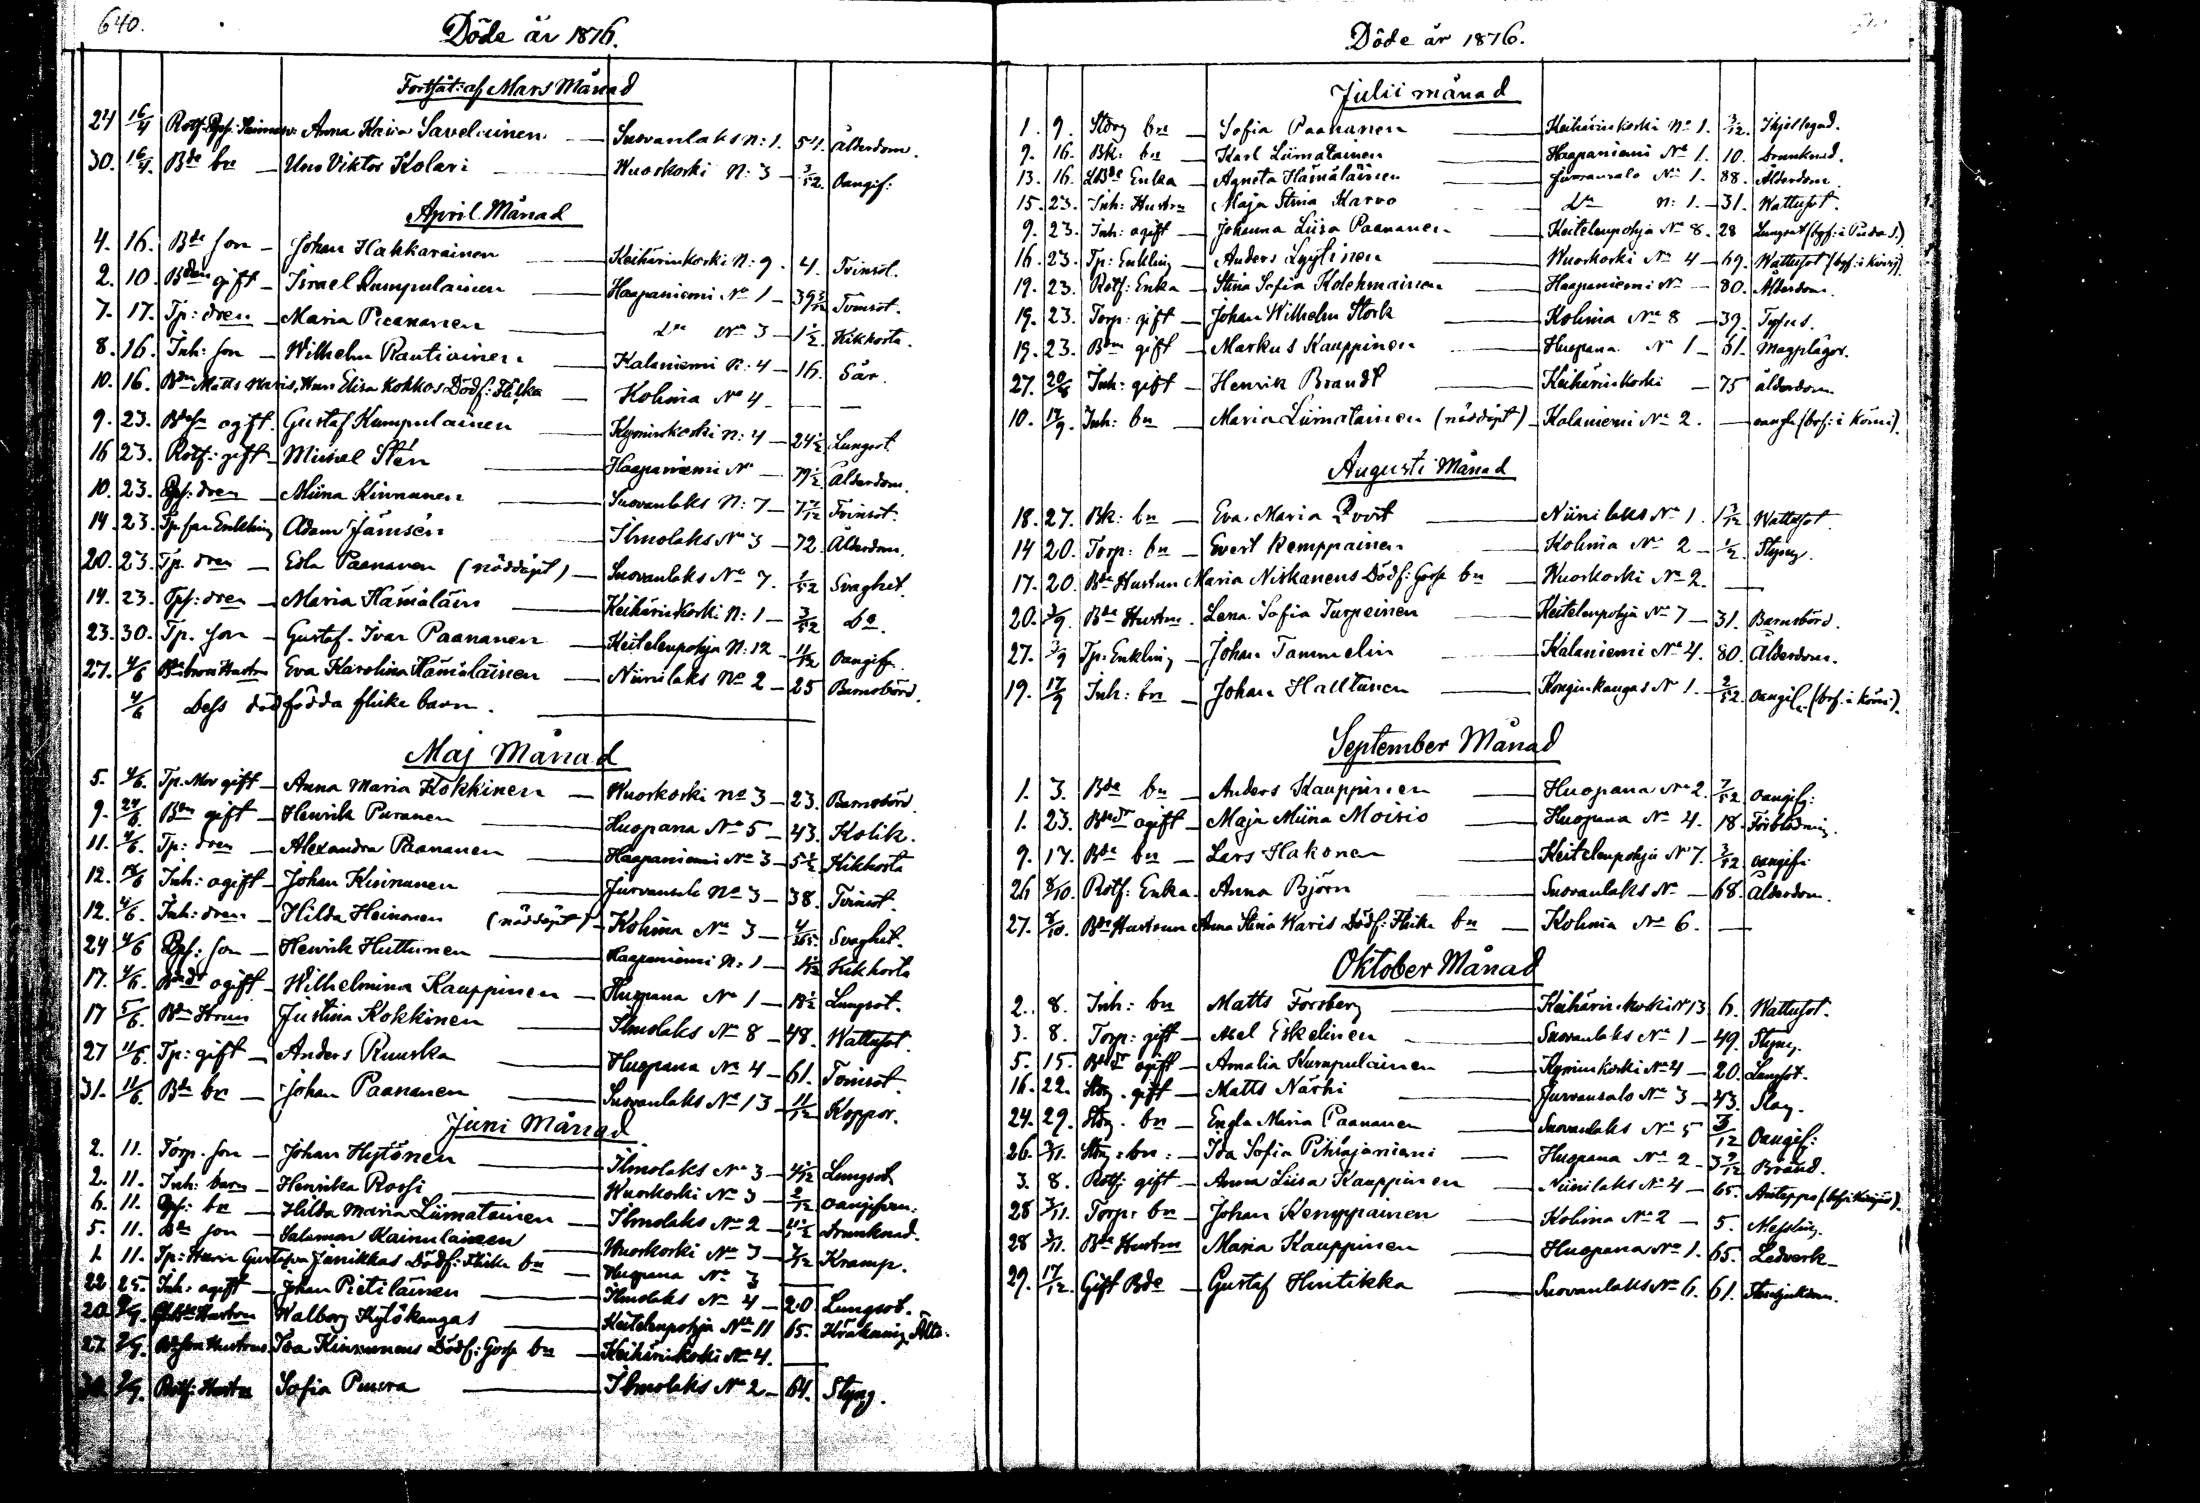 640.
Döde år 1876.
Fortsät: af Mars Månad
24 16/4 Anna Kaisa Saveluinen Suovanlaks N: 1. 54. Ålderdom.
30. 16/4. Bde bn Uno Viktor Kolari Wuoskoski N: 3 3/52. Oangif:
April Månad
4. 16. Bde son Johan Hakkarainen Keihärinkoski N: 9. 4. Tvinsot.
2. 10. Bden gift Israel Kumpulainen Haapaniemi No 1 39 Tvinsot.
7. 17. Tp: dren Maria Paananen Do No 3 1½ Kikhosta.
8. 16. Inh: son Wilhelm Rautiainen Kalaniemi N: 4 16. Sår.
10. 16. Bden Matts Waris, Hun Elisa Kokkos Dödf: Flicka Kolima No 4 —
9. 23. ogift. Gustaf Kumpulainen Kyminkoski N: 4 24½ Lungsot
16 23. Rotf: gift Michel Stén Haapaniemi No 79½ Ålderdom.
10. 23. dren Miina Kinnunen Suovanlaks N: 7 Tvinsot.
14. 23. Enkling Adam Jämsén Ilmolaks No 3 72. Ålderdom.
20. 23. Tp. dren Edla Paananen (nöddöpt) Suovanlaks No 7. 1/52 Svaghet.
14. 23. dren Maria Hämäläin Keihärinkoski N: 1 3/52 Do.
23. 30. Tp. son Gustaf Ivar Paananen Keitelenpohja N: 12 11/12 Oangif.
27. 4/6 Hustru Eva Karolina Hämäläinen Niinilaks No 2 25 Barnsbörd.
4/6 Dess dödfödda flicke barn.
Maj Månad
5. 4/6. Tp. Mor gift Anna Maria Kokkinen Wuoskoski No 3 23. Barnsbörd.
9. 24/6. Bden gift Henrik Puranen Huopana No 5 43. Kolik.
11. 4/6. Tp: dren Alexandra Paananen Haapaniemi No 3 5½ Kikhosta
12. 18/6 Inh: ogift Johan Kinnunen Jurvansalo No 3 38. Tvinsot.
12. 4/6. Inh: dren Hilda Heinonen (nöddöpt) Kolima No 3 4/365. Svaghet.
24 4/6 son Henrik Huttunen Haapaniemi N: 1 Kikhosta
17. 4/6. ogift Wilhelmina Kauppinen Huopana No 1 18½ Lungsot.
17 5/6. Bde Hrun Justina Kokkinen Ilmolaks No 8 48. Wattusot.
27 11/6. Tp: gift Anders Ruuska Huopana No 4 61. Tvinsot.
31. 11/6. Bde bn Johan Paananen Suovanlaks No 13 11/12 Koppor.
Juni Månad
2. 11. Torp. son Johan Hytönen Ilmolaks No 3 Lungsot
2. 11. Inh: barn Henrika Rossi Wuoskoski No 3 2/12 oangifven:
6. 11. bn Hilda Maria Liimatainen Ilmolaks No 2 Drunknad.
5. 11. Bde son Salomon Kainulainen Wuoskoski No 3 7/12 Kramp.
1. 11. Tp: Hustru Gustava Janikkas Dödf: Flicke bn Huopana No 3
22 25. Inh: ogift Johan Pietiläinen Ilmolaks No 4 20 Lungsot.
20 2/7. Hustru Walborg Kylökangas Keitelenpohja No 11 65. Kräkning
27. 2/7. Hustrus Ida Kinnunens Dödf: Gosse bn Keihärinkoski No 4.
30 2/7. Rotf: Hustru Sofia Puura Ilmolaks No 2 64. Styng.
Döde år 1876.
Julii månad
1. 9. Storp bn Sofia Paananen Keihärinkoski No 1. 3/12. Ihjellegad.
9. 16. Bk: bn Karl Liimatainen Haapaniemi No 1. 10. Drunknad.
13. 16. Enka Agneta Hämäläinen Jurvansalo No 1. 88. Ålderdom.
15. 23. Inh: Hustru Maja Stina Karvo Do N: 1. 31. Wattusot.
9. 23. Inh: ogift Johanna Liisa Paananen Keitelenpohja No 8. 28 Lungsot
16. 23. Tp: Enkling Anders Lyytinen Wuoskoski No 4 69. Wattusot
19. 23. Rotf: Enka Stina Sofia Kolehmainen Haapaniemi No 80. Ålderdom.
19. 23. Torp: gift Johan Wilhelm Stork Kolima No 8 39. Tyfus.
19. 23. Bden gift Markus Kauppinen Huopana No 1 61. Magplågor.
27. 20/8 Inh: gift Henrik Brandt Keihärinkoski 75 ålderdom
10. 17/9. Inh: bn Maria Liimatainen (nöddöpt) Kalaniemi No 2.
Augusti Månad
18. 27. Bk: bn Eva Maria Niinilaks No 1. Wattusot
14 20. Torp: bn Evert Kemppainen Kolima No 2 ½ Styng.
17. 20. Bde Hustrun Maria Niskanens Dödf: Gosse bn Wuoskoski No 2.
20. 3/9. Bde Hustru. Lena Sofia Turpeinen Keitelenpohja No 7 31. Barnsbörd.
27. 3/9 Tp: Enkling Johan Tammelin Kalaniemi No 4. 80. Ålderdom.
19. 17/9 Inh: bn Johan Halttunen Konginkangas No 1. 2/52. oangif.
September Månad
1. 3. Bde bn Anders Kauppinen Huopana No 2. 7/52 Oangifg:
1. 23. ogift Maja Miina Moisio Huopana No 4. 18 Förblödning.
9. 17. Bde bn Lars Hakonen Keitelenpohja No 7. 3/52 oangif:
26 8/10. Rotf: Enka Anna Björn Suovanlaks No 68. Ålderdom.
27. 8/10. Bden Hustrun Anna Stina Waris Dödf: Flicke bn Kolima No 6.
Oktober Månad
2. 8. Inh: bn Matts Forsberg Keihärinkoski N 13 6. Wattusot.
3. 8. Torp: gift Abel Eskelinen Suovanlaks No 1 49. Styng.
5. 15. ogift Amalia Kumpulainen Kyminkoski No 4 20. Lungsot.
16. 22. Storp. gift Matts Närhi Jurvansalo No 3 43. Slag.
24. 29. Storp. bn Engla Maria Paananen Suovanlaks No 5 3/12 Oangif:
26. 3/11. Storp: bn: Ida Sofia Pihlajaniemi Huopana No 2 Bränd.
3. 8. Rotf: gift Anna Liisa Kauppinen Niinilaks No 4 65.
28 3/11. Torp: bn Johan Kemppainen Kolima No 2 5. Messling.
28 3/11. Bde Hustru Maria Kauppinen Huopana No 1. 65. Ledverk
29. 17/12. Gift Bde Gustaf Hintikka Suovanlaks No 6. 61.